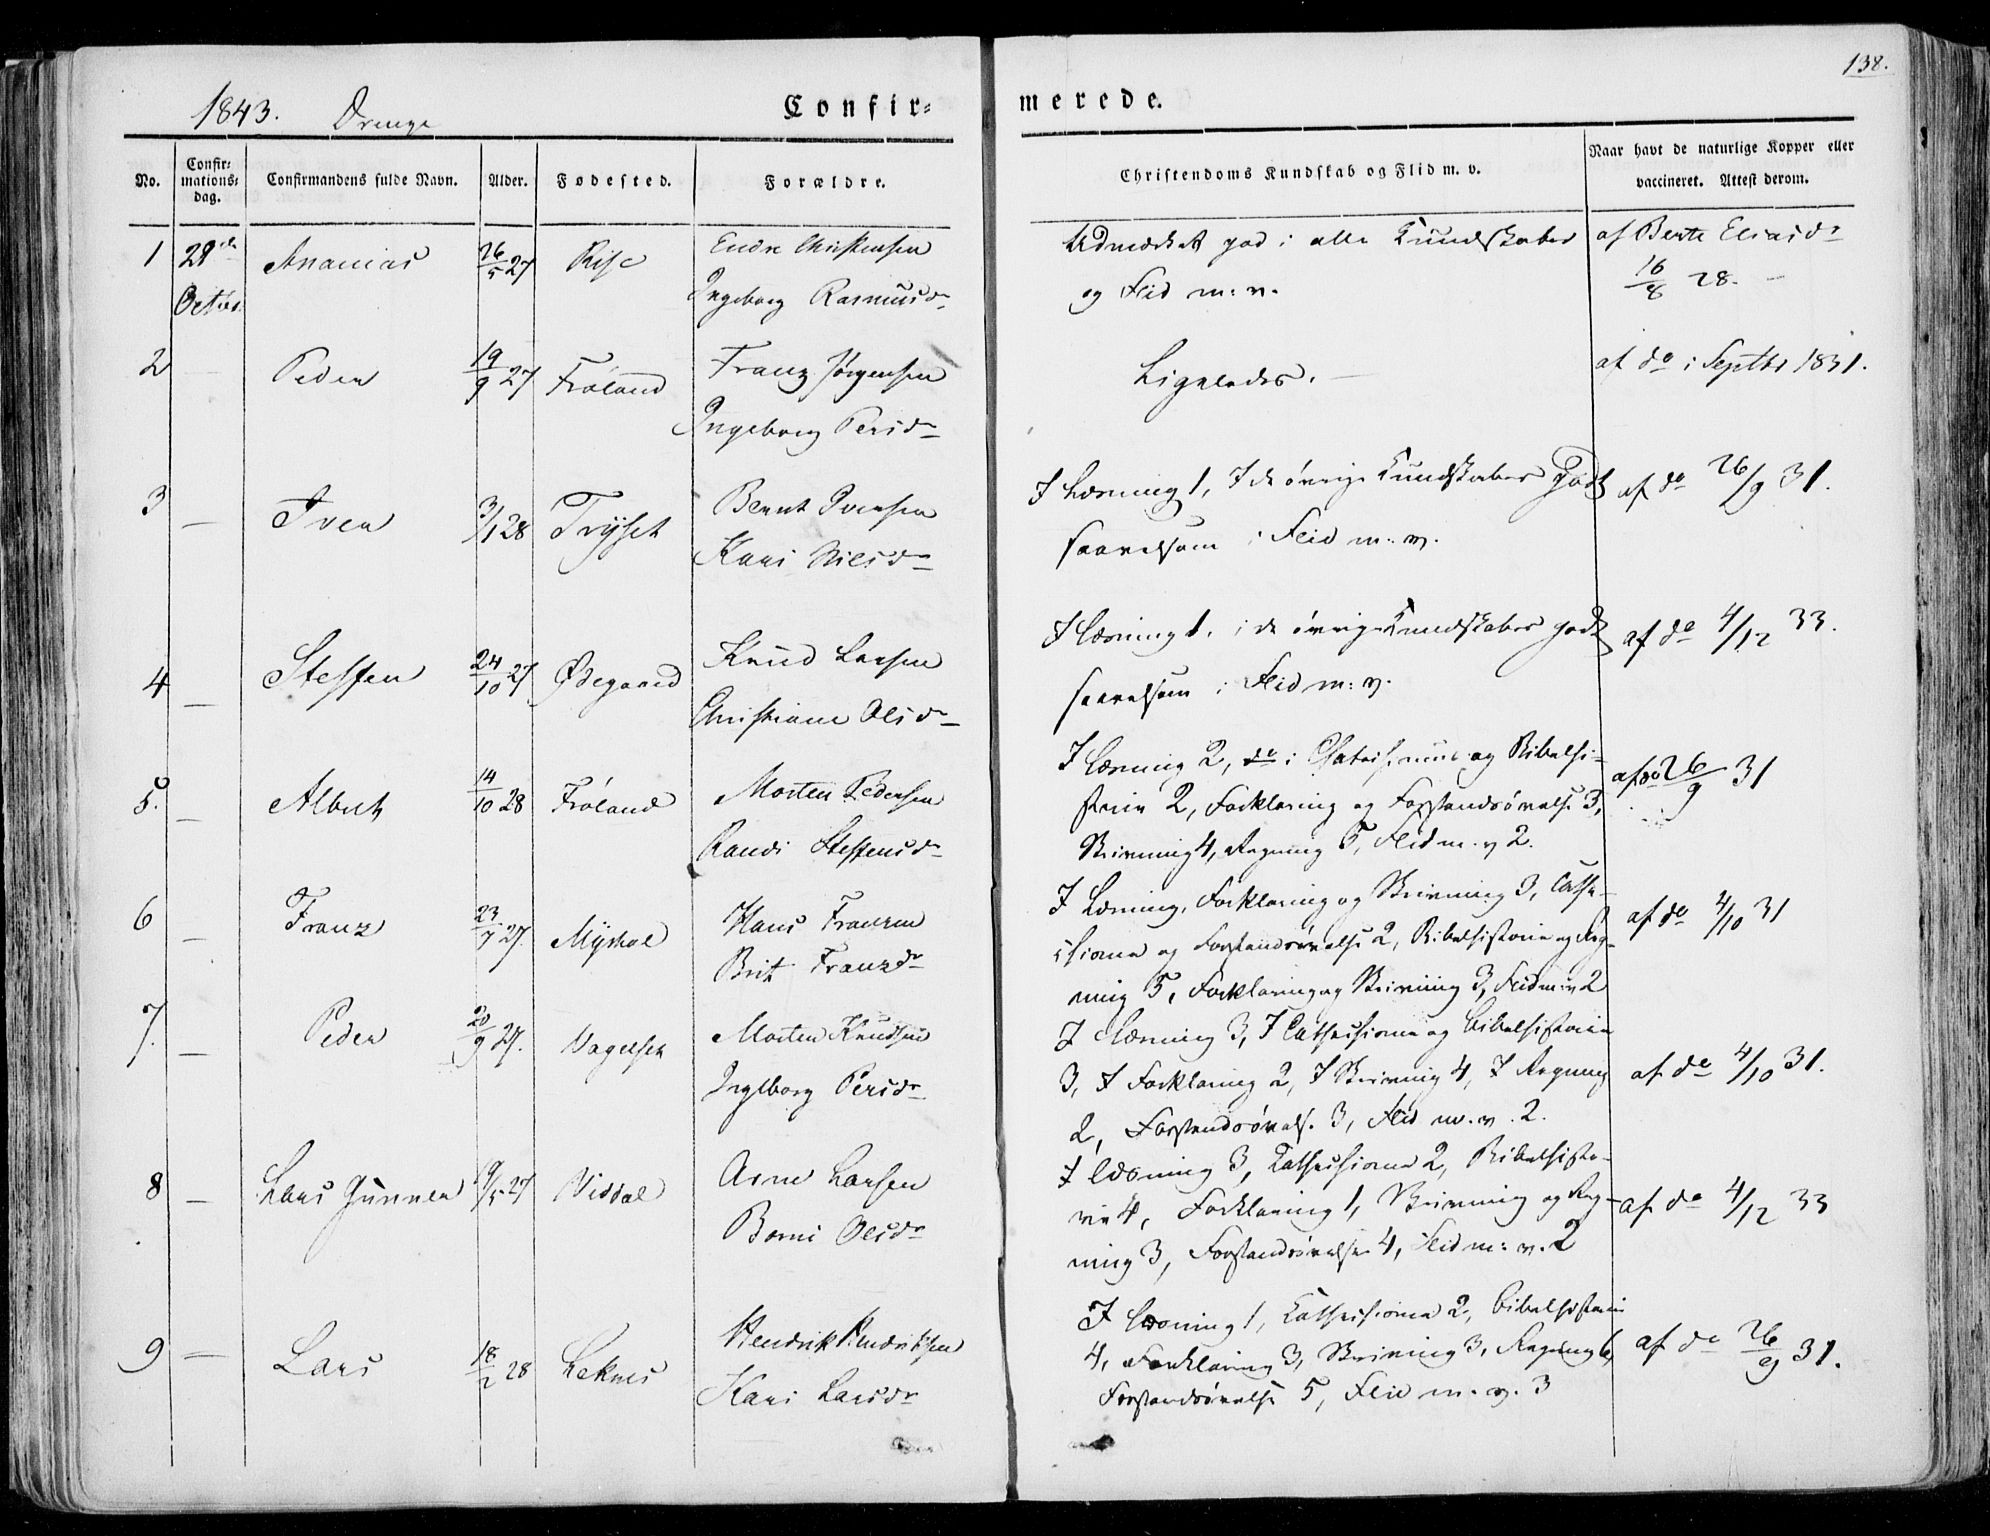 138.
1843. Drenge
Confir=
merede.
No.
Confir=
mations=
dag.
Confirmandens fulde Navn.
Alder.
Fødested.
Forældre.
Christendoms Kundskab og Flid m. v.
Naar havt de naturlige Kopper eller
vaccineret. Attest derom.
1 29de Ananias 26/5 27 Rise Endre Christensen
Octbr. Ingeborg Rasmusdr
Udmærket god i alle Kundskaber
og Flid m: v.
af Berte Eliasdr
16/8 28. —
2 — Peder 19/9 27 Frøland Franz Jørgensen
Ingeborg Persdr
Ligeledes. —
af do i Septbr 1831.
3 — Iver 3/1 28 Tryset Bernt Iversen
Kari Nilsdr
I Læsning 1, I de øvrige Kundskaber Godt
saavelsom i Flid m: v.
af do 26/9 31.
4 — Steffen 24/10 27 Ødegaard Knud Larsen
Christiane Olsdr
I Læsning 1. i de øvrige Kundskaber godt
saavelsom i Flid m: v.
af do 4/12 33.
5. — Albert 14/10 28 Frøland Morten Pedersen
Randi Steffensdr
I Læsning 2, do i Chatechismus og Bibelhi-
storie 2, Forklaring og Forstandsøvelse 3,
Skrivning 4, Regning 5, Flid m. v 2.
af do 26/9 31
6 — Franz 23/7 27. Myskal Hans Franzen
Brit Franzdr
I Læsning, Forklaring og Skrivning 3, Cathe-
chisme og Forstandsøvelse 2, Bibelhistorie og Reg-
ning 5, Forklaring og Skrivning 3, Flid m: v 2
af do 4/10 31
7. — Peder 20/9 27. Vagelset Morten Knudsen
Ingeborg Persdr
I Læsning 3, I Cathechisme og Bibelhistorie
3, I Forklaring 2, I Skrivning 4, I Regning
2, Forstandsøvelse 3, Flid m. v. 2.
af do 4/10 31.
8 — Lars Gunner 9/5 27 Viddal Arne Larsen
Borni Olsdr
I Læsning 3, Cathechisme 2, Bibelhisto-
rie 4, Forklaring 1, Skrivning og Reg-
ning 3, Forstandsøvelse 4, Flid m: v. 2
af do 4/12 33
9 — Lars 18/2 28 Leknes Hendrik Hendriksen
Kari Larsdr
I Læsning 1, Cathechisme 2, Bibelhistorie
4, Forklaring 3, Skrivning 3, Regning 6,
Forstandsøvelse 5, Flid m. v. 3
af do 26/9 31.